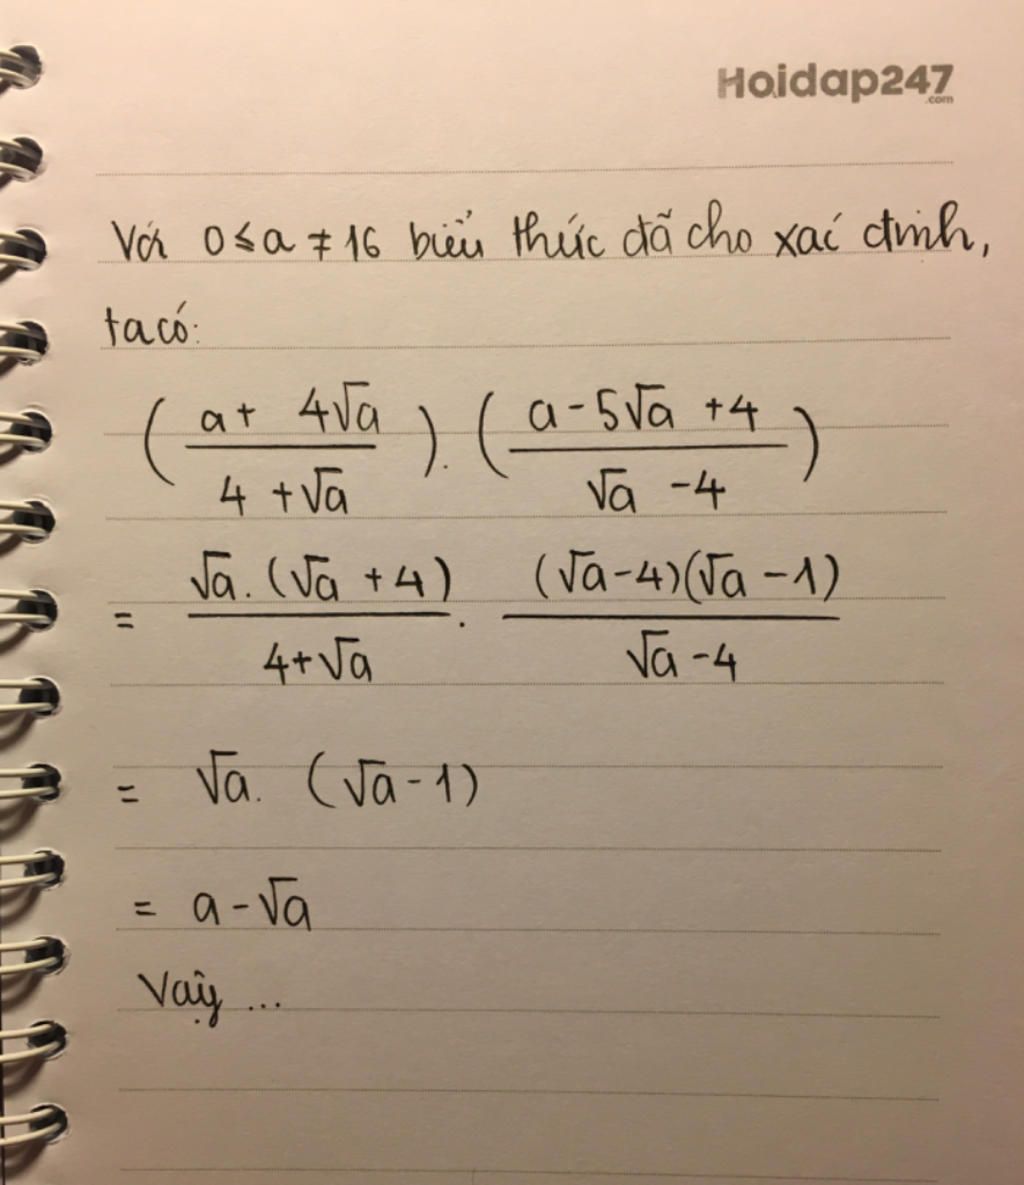 Hoidap247
.com
Với 0 ≤ a ≠ 16 biểu thức đã cho xác định,
ta có:
( (a + 4√a) / (4 + √a) ) . ( (a - 5√a + 4) / (√a - 4) )
= (√a . (√a + 4)) / (4 + √a) . ((√a - 4)(√a - 1)) / (√a - 4)
= √a . (√a - 1)
= a - √a
Vậy ...